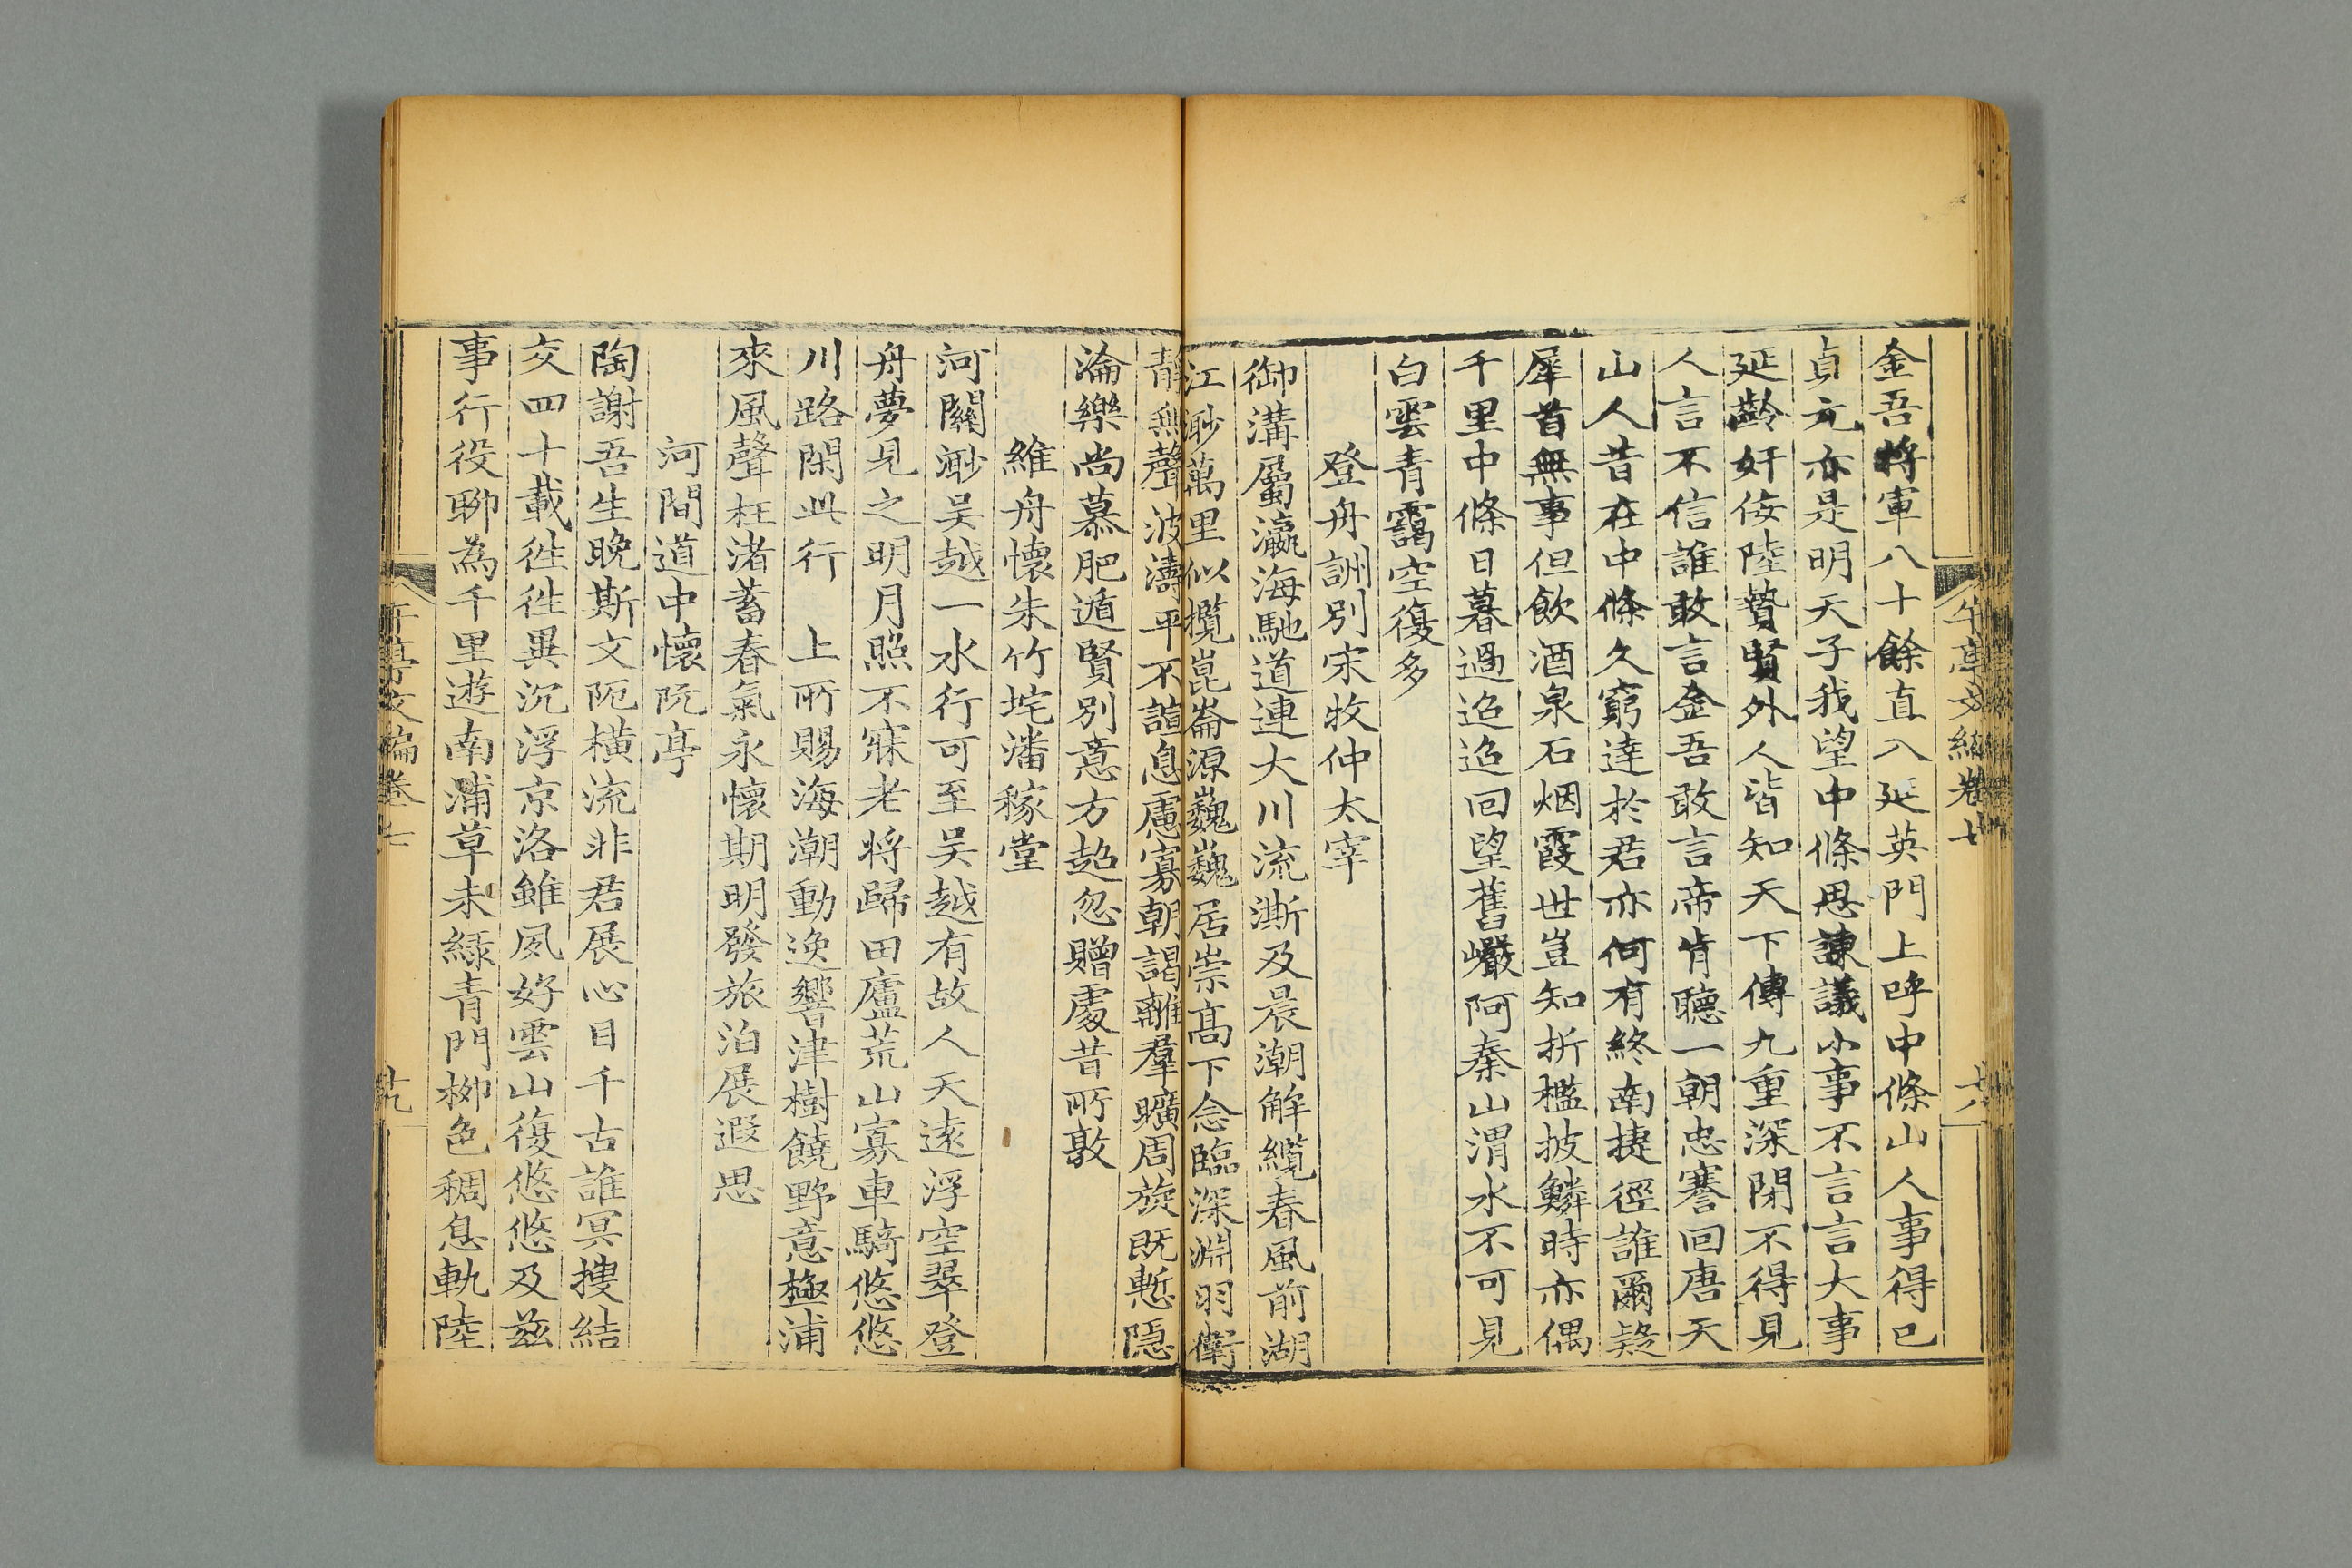 午亭文編卷七
十八
金吾將軍八十餘直入延英門上呼中條山人事得已
貞元亦是明天子我望中條思諫議小事不言言大事
延齡奸佞陸贄賢外人皆知天下傳九重深閉不得見
人言不信誰敢言金吾敢言帝肯聽一朝忠謇回唐天
山人昔在中條久窮達於君亦何有終南捷徑誰爾疑
犀首無事但飲酒泉石烟霞世豈知折檻披鱗時亦偶
千里中條日暮過迢迢回望舊巖阿秦山渭水不可見
白雲青靄空復多
登舟詶別宋牧仲太宰
御溝屬瀛海馳道連大川流澌及晨潮解纜春風前湖
江渺萬里似攬崑崙源巍巍居崇高下念臨深淵羽衛
靜無聲波濤平不諠息慮寡朝謁離羣曠周旋既慙隱
淪樂尚慕肥遁賢別意方超忽贈處昔所敦
維舟懷朱竹垞潘稼堂
河關渺吴越一水行可至吴越有故人天遠浮空翠登
舟夢見之明月照不寐老將歸田廬荒山寡車騎悠悠
川路閑此行　上所賜海潮動逸響津樹饒野意極浦
來風聲枉渚蓄春氣永懷期明發旅泊展遐思
河間道中懷阮亭
陶謝吾生晚斯文阨橫流非君展心目千古誰冥搜結
交四十載徃徃異沉浮京洛雖夙好雲山復悠悠及茲
事行役聊為千里遊南浦草未綠青門柳色稠息軌陸
午亭文編卷七
十九